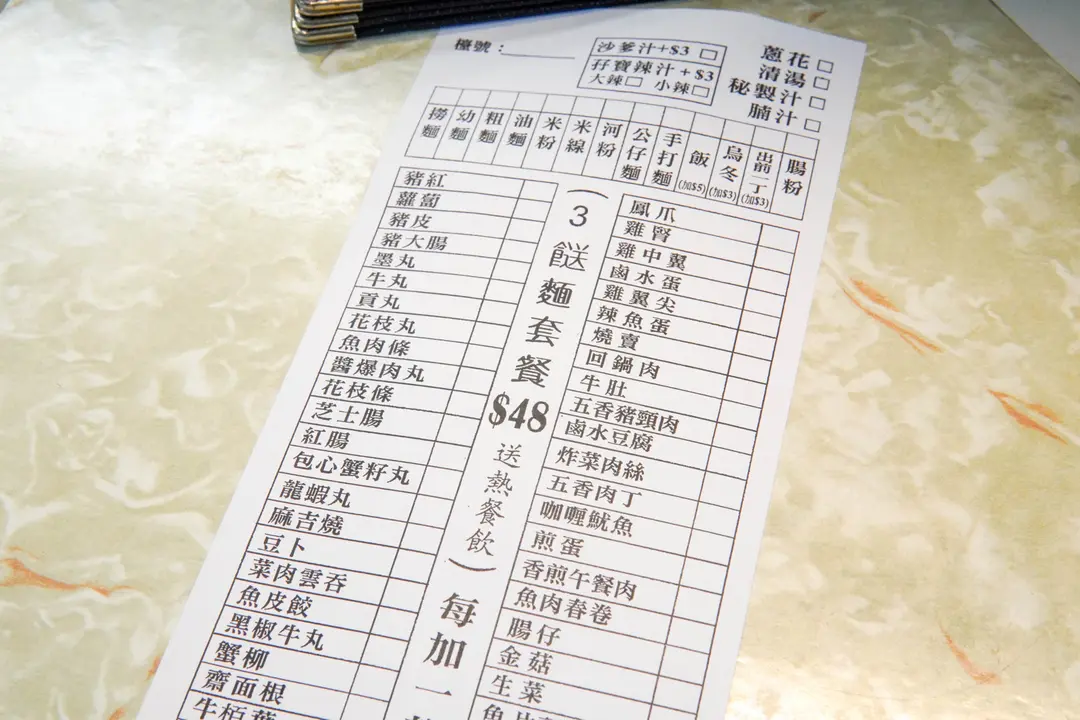 檯號：
沙爹汁+$3
孖寶辣汁+$3
大辣 小辣
蔥花
清湯
秘製汁
腩汁
撈麵
幼麵
粗麵
油麵
米粉
米線
河粉
公仔麵
手打麵
飯(加$5)
烏冬(加$3)
出前一丁(加$3)
腸粉
豬紅
蘿蔔
豬皮
豬大腸
墨丸
牛丸
貢丸
花枝丸
魚肉條
醬爆肉丸
花枝條
芝士腸
紅腸
包心蟹籽丸
龍蝦丸
麻吉燒
豆卜
菜肉雲吞
魚皮餃
黑椒牛丸
蟹柳
齋面根
牛栢葉
(3餸麵套餐$48送熱餐飲)每加一
鳳爪
雞腎
雞中翼
鹵水蛋
雞翼尖
辣魚蛋
燒賣
回鍋肉
牛肚
五香豬頸肉
鹵水豆腐
炸菜肉絲
五香肉丁
咖喱魷魚
煎蛋
香煎午餐肉
魚肉春卷
腸仔
金菇
生菜